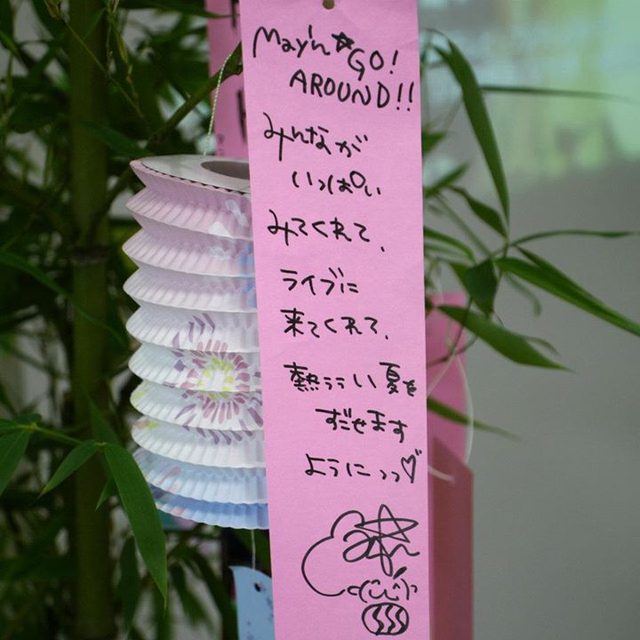 May'n☆GO!
AROUND!!
みんなが
いっぱい
みてくれて、
ライブに
来てくれて、
熱ぅぅい夏を
すごせます
ようにっっ♡